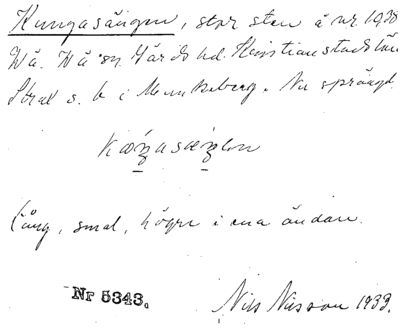 Kungasängen, stor sten å nr 19
Vä. Vä sn. Gärds hd. Kristianstads län
Strax s. k i Munkaberg. Nu sprängd.
lång, smal, högre i ena ändan.
Nr 5343.
Nils Nilsson 1933.